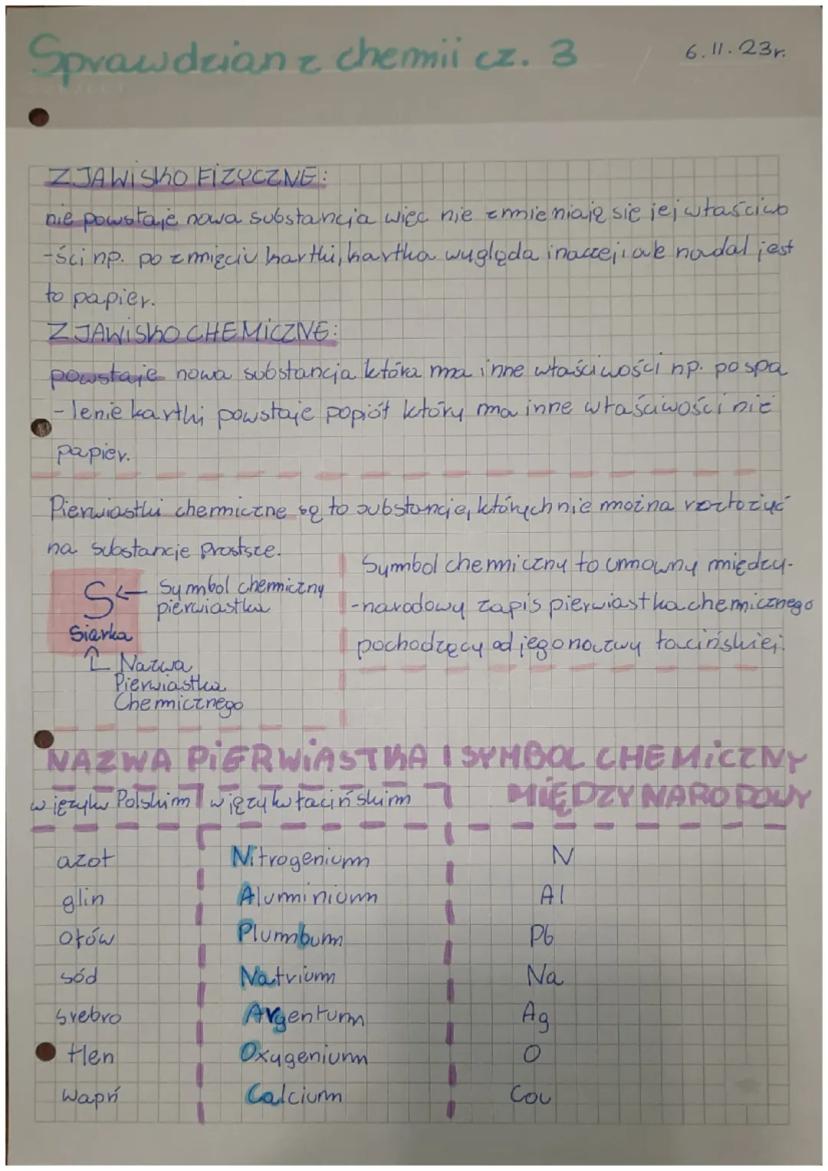 Sprawdzian z chemii cz. 3
6.11.23r.
ZJAWISKO FIZYCZNE:
nie powstaje nowa substancja więc nie zmieniają się jej właściwo
-ści np. po zmięciu kartki, kartka wygląda inaczej, ale nadal jest
to papier.
ZJAWISKO CHEMICZNE:
powstaje nowa substancja która ma inne właściwości np. po spa
-lenie kartki powstaje popiół który ma inne właściwości niż
papier.
Pierwiastki chemiczne są to substancje, których nie można rozłożyć
na substancje prostsze.
S ← Symbol chemiczny
pierwiastka
Siarka
Nazwa
Pierwiastka
Chemicznego
Symbol chemiczny to umowny między-
-narodowy zapis pierwiastka chemicznego
pochodzący od jego nazwy łacińskiej.
NAZWA PIERWIASTKA | SYMBOL CHEMICZNY
MIĘDZYNARODOWY
w języku Polskim w języku łacińskim
azot Nitrogenium N
glin Aluminium Al
ołów Plumbum Pb
sód Natrium Na
srebro Argentum Ag
tlen Oxygenium O
wapń Calcium Ca